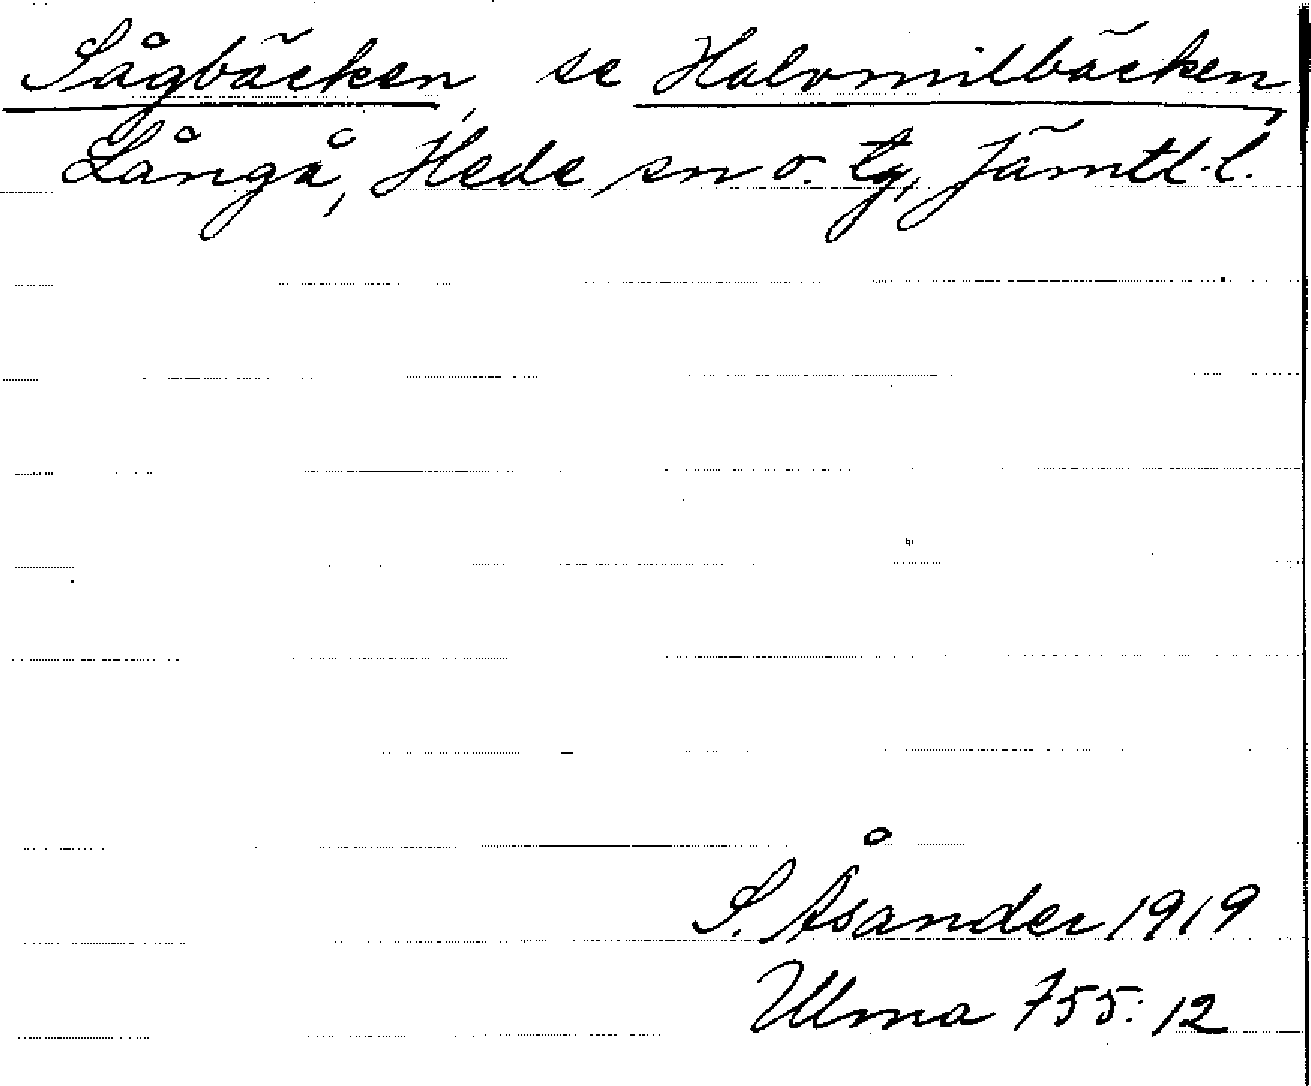 Sågbäcken, se Halvmilbäcken
Långå, Hede sn o. tg, Jämtl. l.
S. Åsander 1919
Ulma 755:12